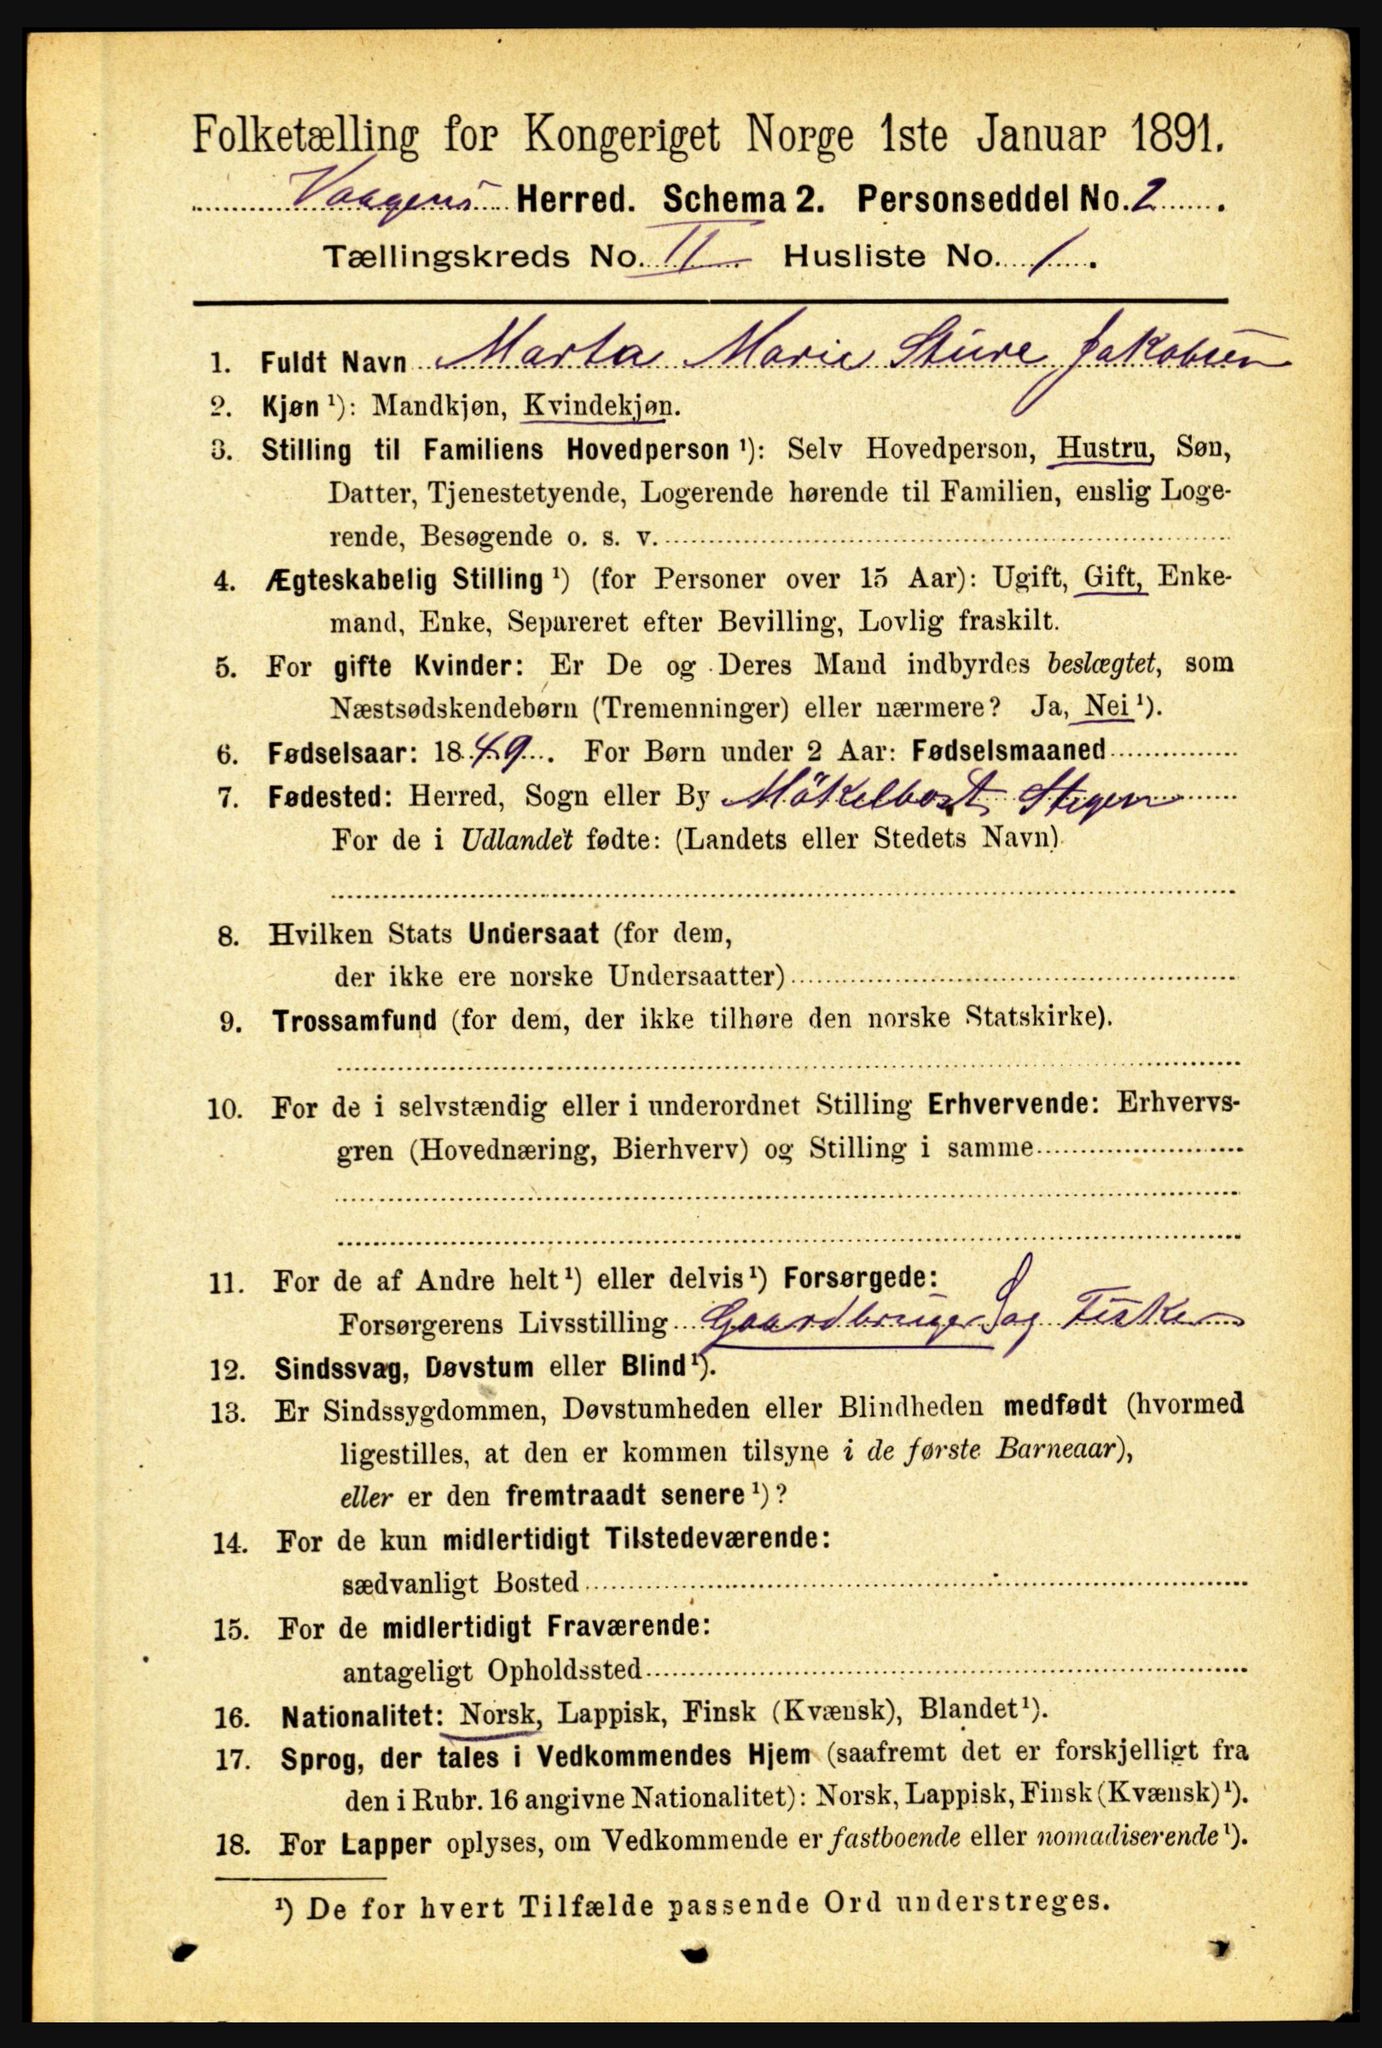 Folketælling for Kongeriget Norge 1ste Januar 1891.
Vaagens Herred. Schema 2. Personseddel No. 2.
Tællingskreds No. II. Husliste No. 1.
1. Fuldt Navn Marta Marie Sture Jakobsen
2. Kjøn ¹): Mandkjøn, Kvindekjøn.
3. Stilling til Familiens Hovedperson ¹): Selv Hovedperson, Hustru, Søn,
Datter, Tjenestetyende, Logerende hørende til Familien, enslig Loge-
rende, Besøgende o. s. v.
4. Ægteskabelig Stilling ¹) (for Personer over 15 Aar): Ugift, Gift, Enke-
mand, Enke, Separeret efter Bevilling, Lovlig fraskilt.
5. For gifte Kvinder: Er De og Deres Mand indbyrdes beslægtet, som
Næstsødskendebørn (Tremenninger) eller nærmere? Ja, Nei ¹).
6. Fødselsaar: 1849. For Børn under 2 Aar: Fødselsmaaned
7. Fødested: Herred, Sogn eller By Mökelbost, Stegen
For de i Udlandet fødte: (Landets eller Stedets Navn)
8. Hvilken Stats Undersaat (for dem,
der ikke ere norske Undersaatter)
9. Trossamfund (for dem, der ikke tilhøre den norske Statskirke).
10. For de i selvstændig eller i underordnet Stilling Erhvervende: Erhvervs-
gren (Hovednæring, Bierhverv) og Stilling i samme
11. For de af Andre helt ¹) eller delvis ¹) Forsørgede:
Forsørgerens Livsstilling Gaardbruger og Fisker
12. Sindssvag, Døvstum eller Blind ¹).
13. Er Sindssygdommen, Døvstumheden eller Blindheden medfødt (hvormed
ligestilles, at den er kommen tilsyne i de første Barneaar),
eller er den fremtraadt senere ¹)?
14. For de kun midlertidigt Tilstedeværende:
sædvanligt Bosted
15. For de midlertidigt Fraværende:
antageligt Opholdssted
16. Nationalitet: Norsk, Lappisk, Finsk (Kvænsk), Blandet ¹).
17. Sprog, der tales i Vedkommendes Hjem (saafremt det er forskjelligt fra
den i Rubr. 16 angivne Nationalitet): Norsk, Lappisk, Finsk (Kvænsk) ¹).
18. For Lapper oplyses, om Vedkommende er fastboende eller nomadiserende ¹).
¹) De for hvert Tilfælde passende Ord understreges.